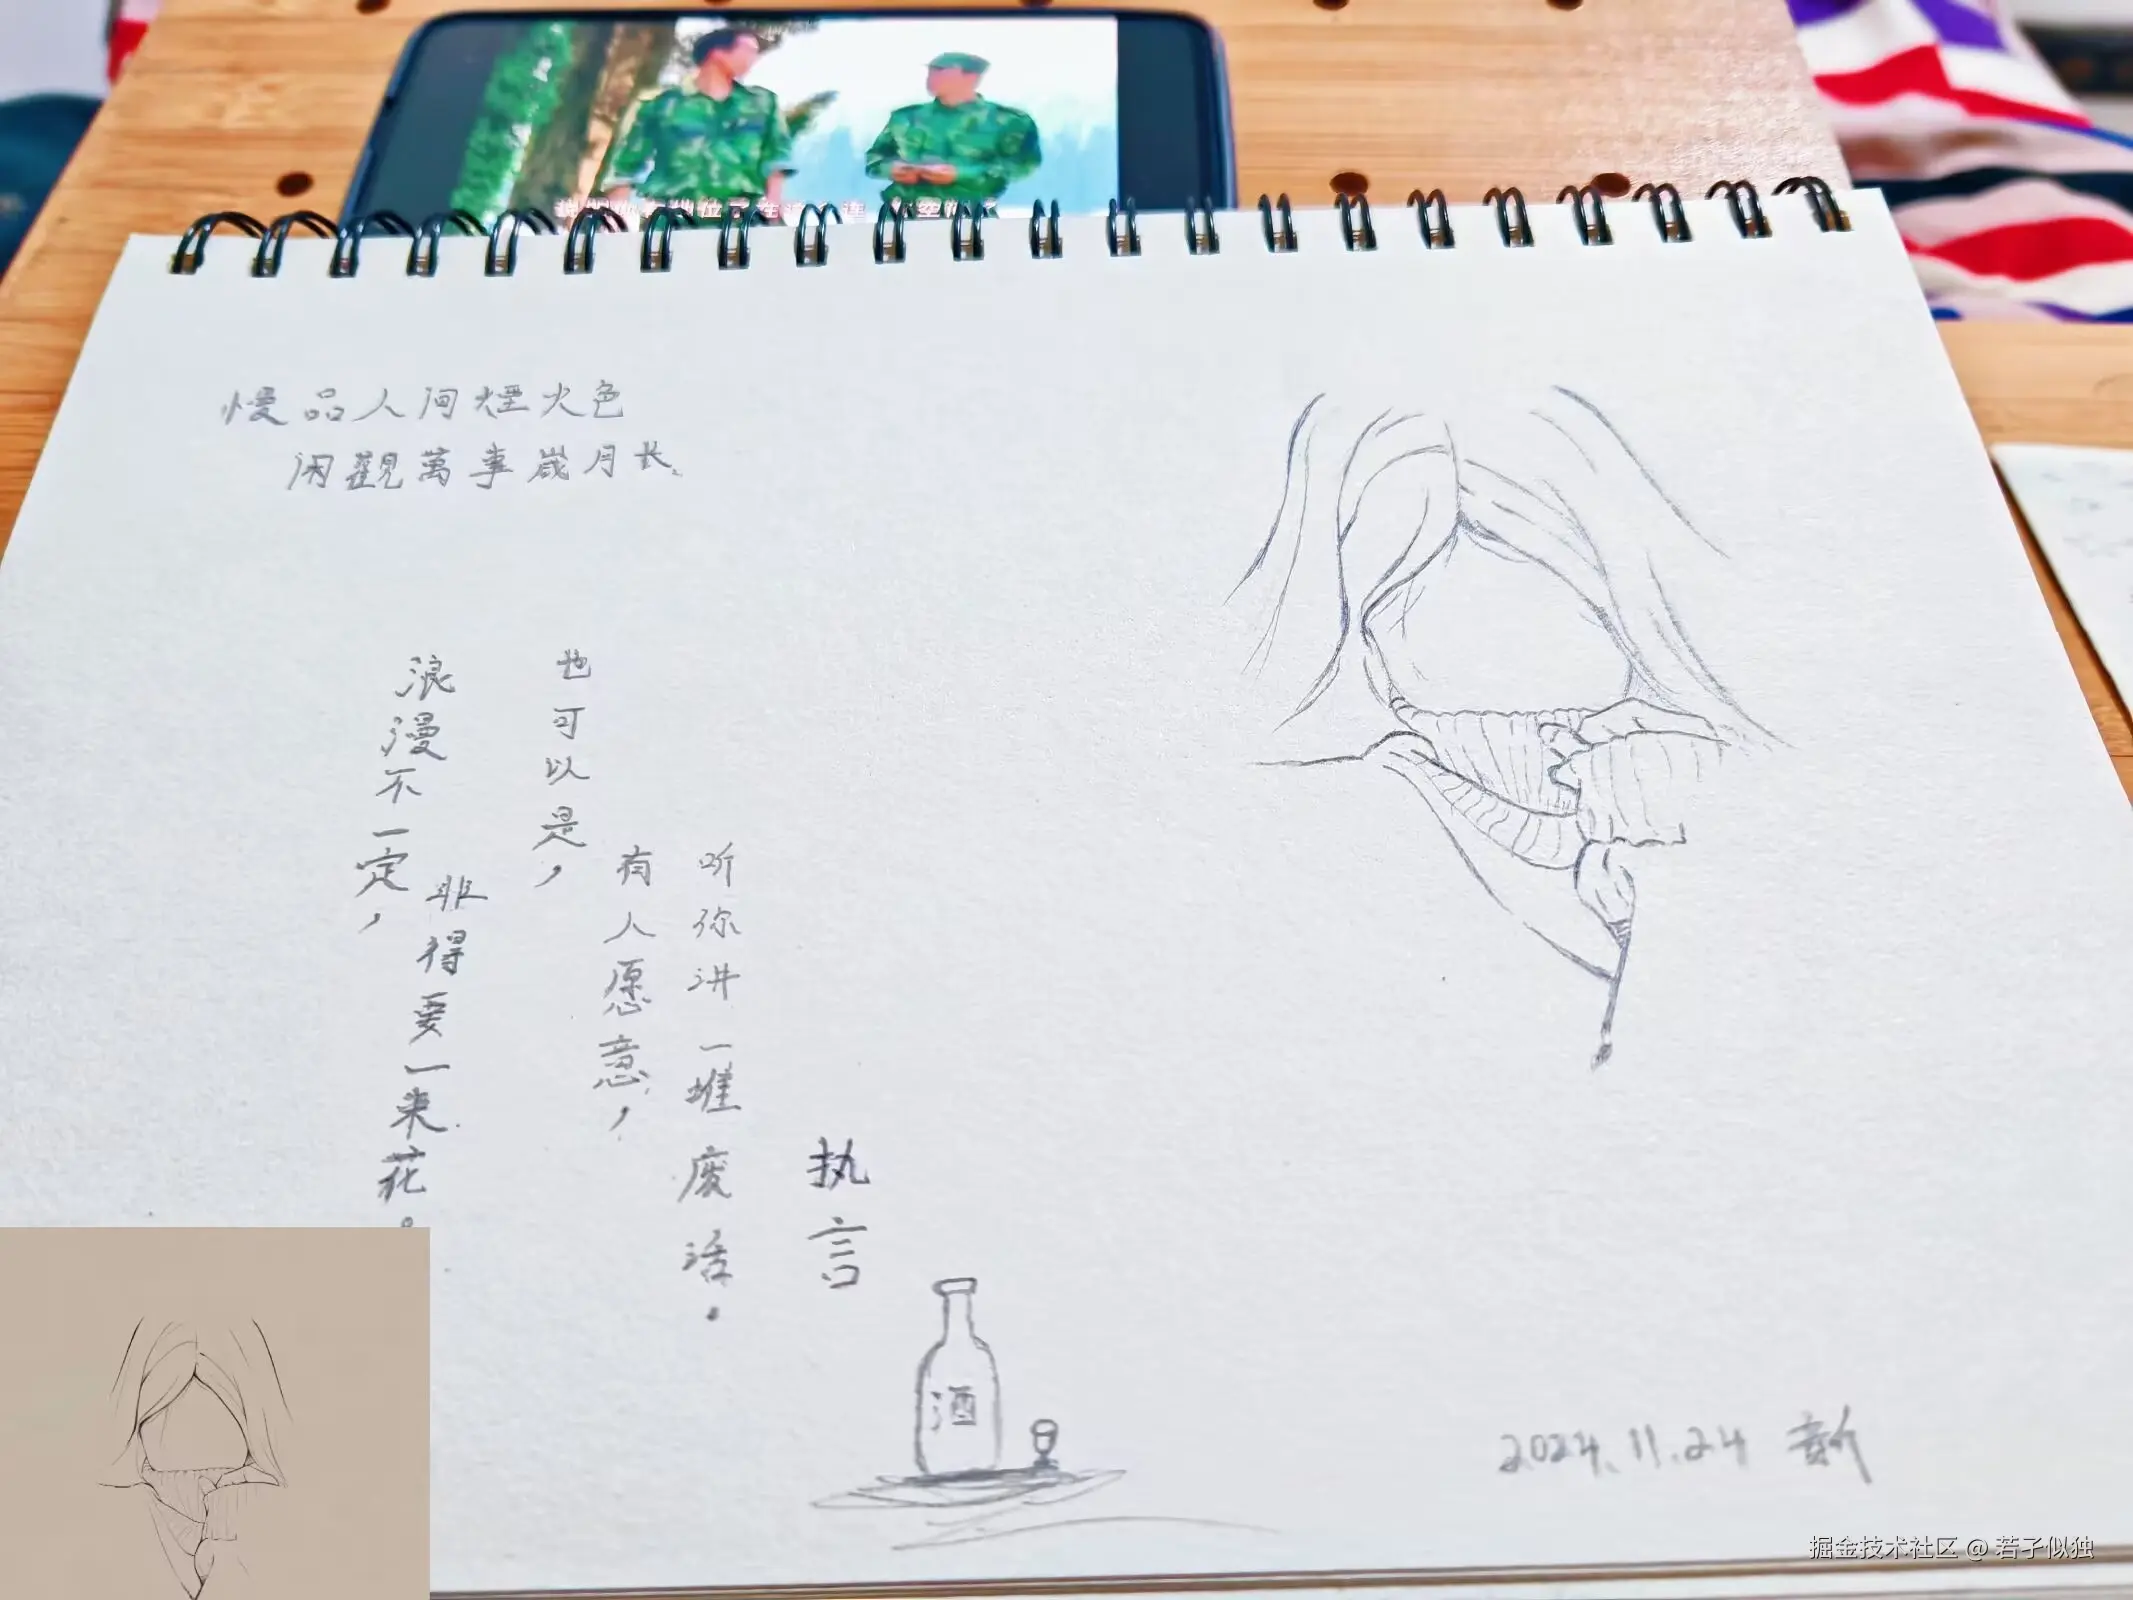 慢品人间煙火色
闲觀萬事歲月长
浪漫不一定，
非得要一束花。
也可以是，
有人愿意，
听你讲一堆废话。
执言
酒
2024.11.24
掘金技术社区 @ 若子似独